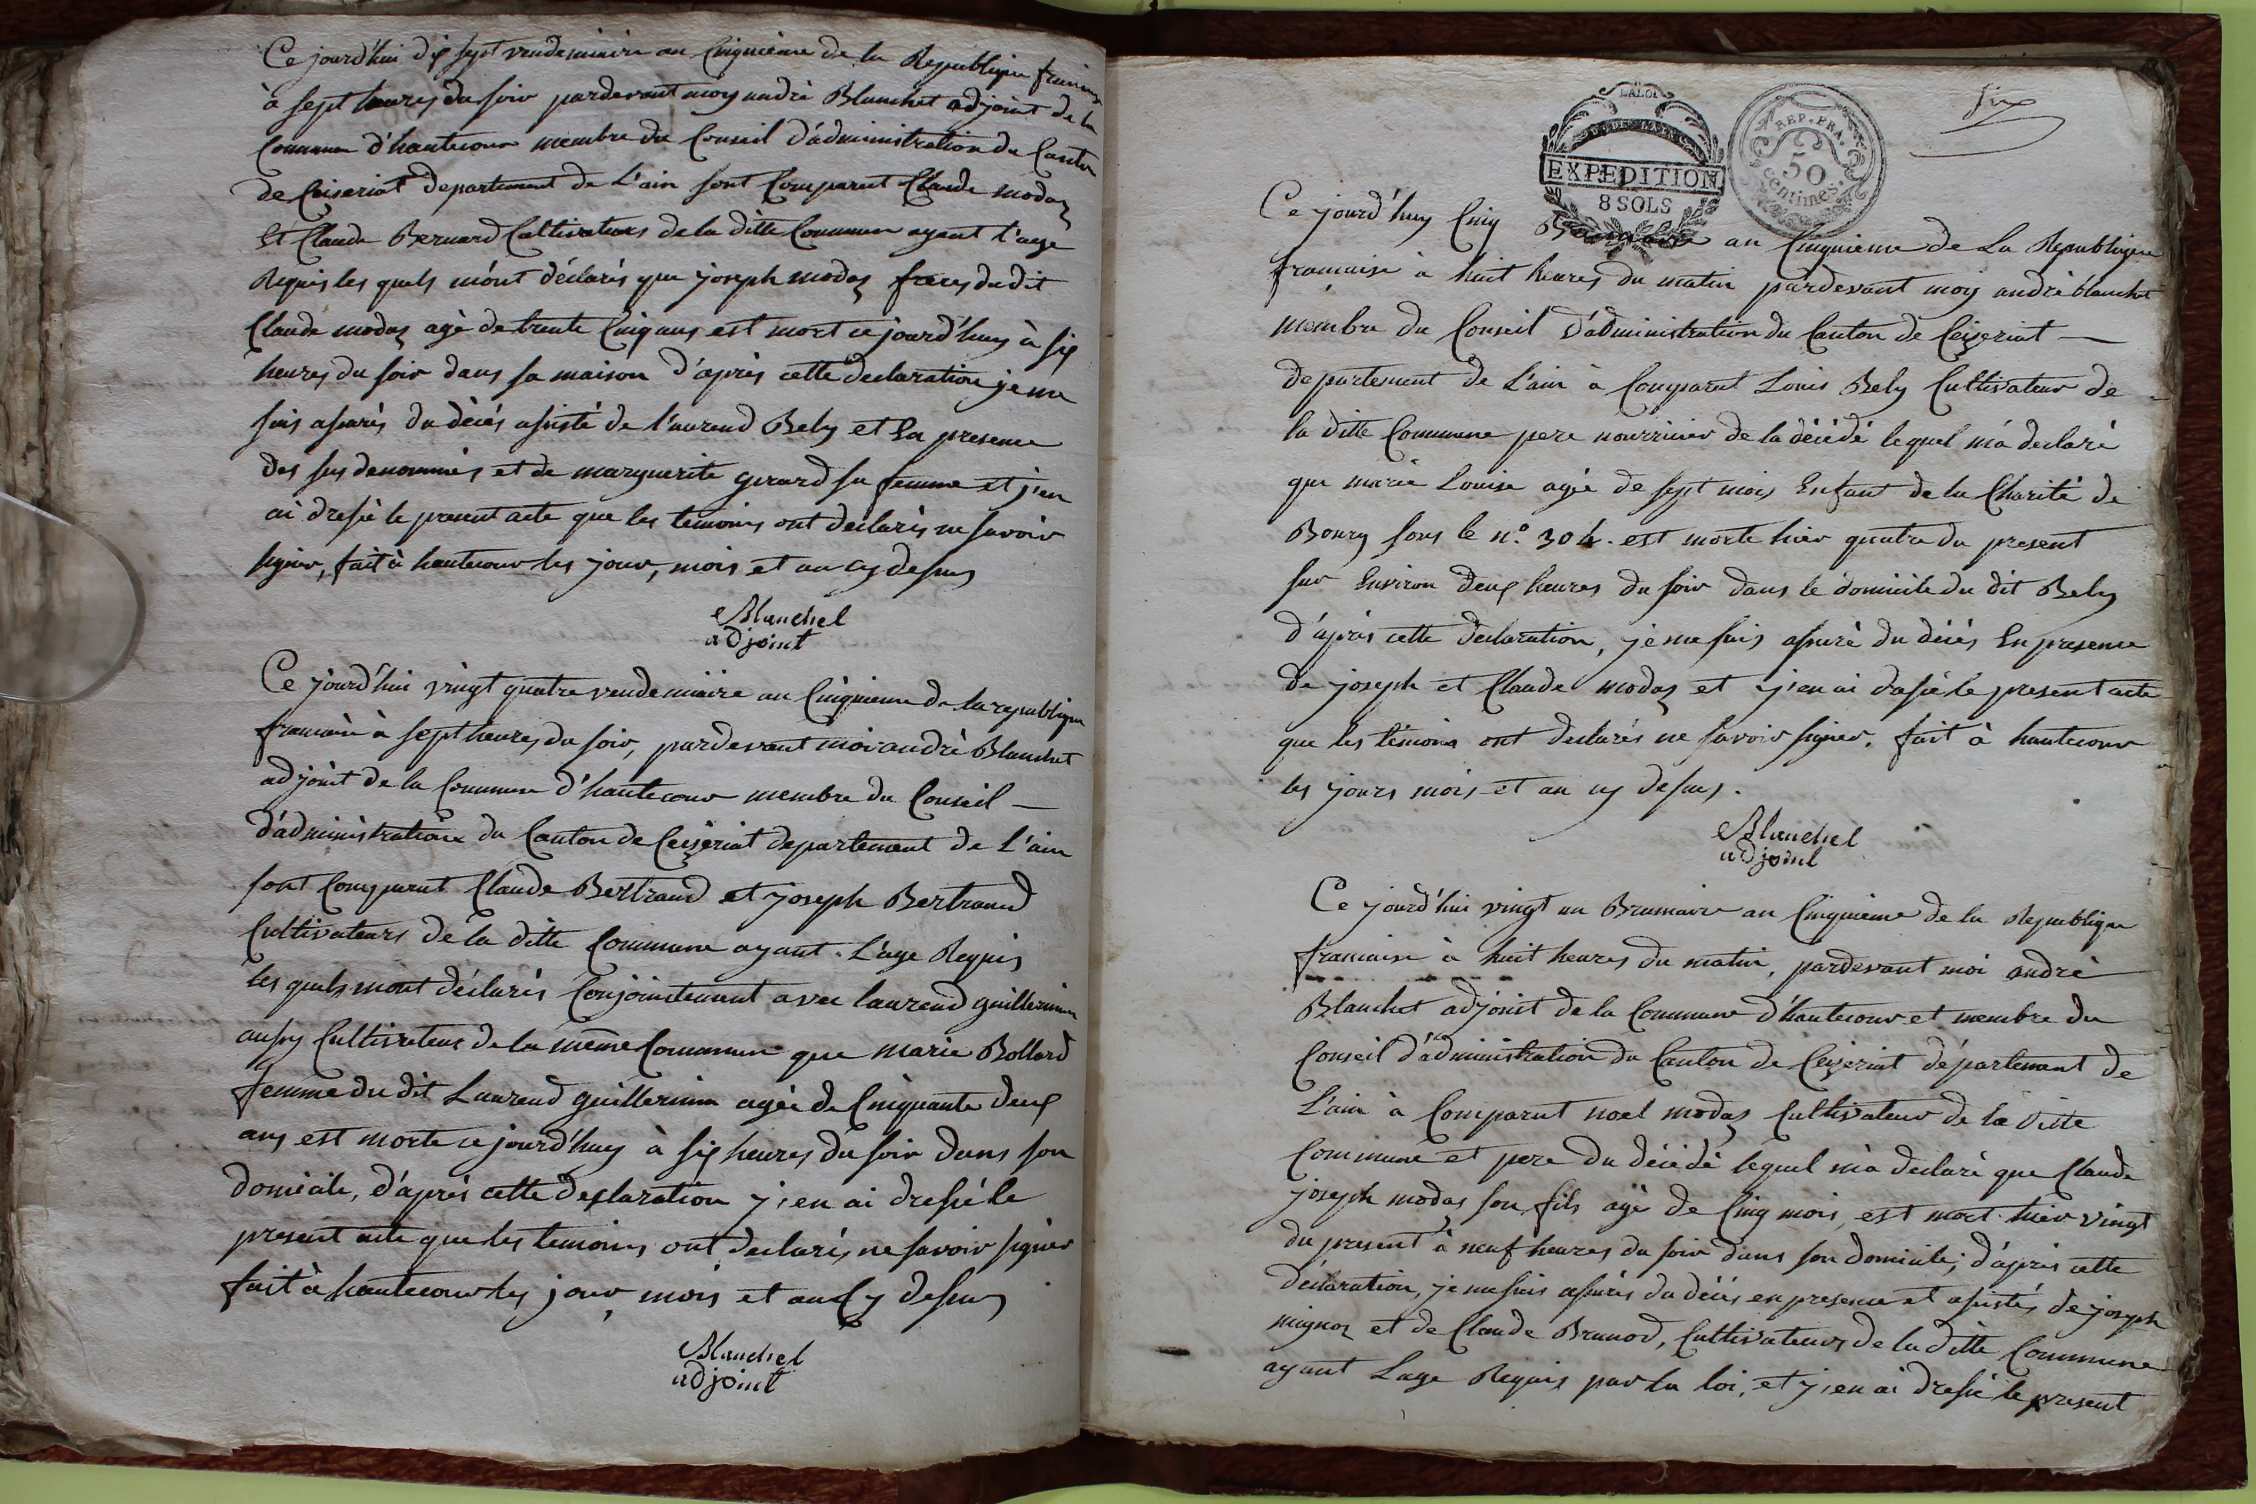 Ce jourd'hui dix sept vendemiaire an Cinquieme de la Republique francaise
à sept heures du soir pardevant moy andré Blanchet adjoint de la
Commune d'hautecour membre du Conseil d'administration du Canton
de Ceiseriat departement de L'ain sont Comparut Claude modas
Et Claude Bernard Cultivateurs de la ditte Commune ayant l'age
Requis les quels m'ont déclarés que joseph modas frere du dit
Claude modas agé de trente Cinq ans est mort ce jourd'huy à six
heures du soir dans sa maison d'après cette declaration je me
suis asurés du décés asisté de l'aurend Bely et En presence
des sus denommés et de marguerite girard sa femme et j'en
ai dressé le present acte que les temoins ont déclarés ne savoir
signer, fait à hautecour les jour, mois et an cy desus
Blanchet
adjoint
Ce jourd'hui vingt quatre vendemiaire an Cinquieme de la republique
francaise à sept heures du soir, pardevant moi andré Blanchet
adjoint de la Commune d'hautecour membre du Conseil —
d'administration du Canton de Ceiseriat departement de L'ain
sont Comparut Claude Bertrand et joseph Bertrand
Cultivateurs de la ditte Commune ayant L'age Requis
les quels mont déclarés Conjointement avec laurend guillermin
aussy Cultivateur de la même Commune que marie Bollard
femme du dit Laurend guillermin agée de Cinquante deux
ans est morte ce jourd'huy à six heures du soir dans son
domicile, d'après cette declaration j'en ai dressé le
present acte que les temoins ont declarés ne savoir signer
fait à hautecour les jour, mois et an Cy desus
Blanchet
adjoint
LA LOI
EXPEDITION
8 SOLS
REP. FRA.
50
centimes.
six
Ce jourd'huy Cinq Brumaire an Cinquieme de La Republique
francaise à huit heures du matin pardevant moy andré blanchet
membre du Conseil d'administration du Canton de Ceizeriat —
departement de L'ain à Comparut Louis Bely Cultivateur de
la ditte Commune pere nourricier de la décédé lequel m'a declaré
que marie Louise agée de sept mois Enfant de la Charité de
Bourg sous le n.º 304. est morte hier quatre du present
sur Environ deux heures du soir dans le domicile du dit Bely
d'après cette declaration, je me suis assuré du décés En presence
de joseph et Claude modas et j'en ai dressé le present acte
que les témoins ont declarés ne savoir signer. fait à hautecour
les jours mois et an cy desus.
Blanchet
adjoint
Ce jourd'hui vingt un Brumaire an Cinquieme de la Republique
francaise à huit heures du matin, pardevant moi andré
Blanchet adjoint de la Commune d'hautecour et membre du
Conseil d'administration du Canton de Ceizeriat département de
L'ain à Comparut noel modas Cultivateur de la ditte
Commune et pere du décédé lequel m'a declaré que Claude
joseph modas son fils agé de Cinq mois, est mort hier vingt
du present à neuf heures du soir dans son domicile; d'après cette
déclaration, je me suis assurés du décés en presence et asistés de joseph
mignot et de Claude Brunod, Cultivateurs de la ditte Commune
ayant L'age Requis par la loi, et j'en ai dressé le present